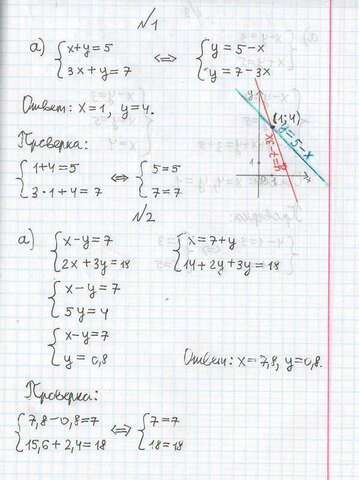 №1
а) { x+y=5 ⇔ { y=5-x
{ 3x+y=7 { y=7-3x
Ответ: x=1, y=4.
y
(1;4)
y=5-x
y=7-3x
1
x
Проверка:
{ 1+4=5 ⇔ { 5=5
{ 3·1+4=7 { 7=7
№2
а) { x-y=7 { x=7+y
{ 2x+3y=18 { 14+2y+3y=18
{ x-y=7
{ 5y=4
{ x-y=7
{ y=0,8
Ответ: x=7,8, y=0,8.
Проверка:
{ 7,8-0,8=7 ⇔ { 7=7
{ 15,6+2,4=18 { 18=18